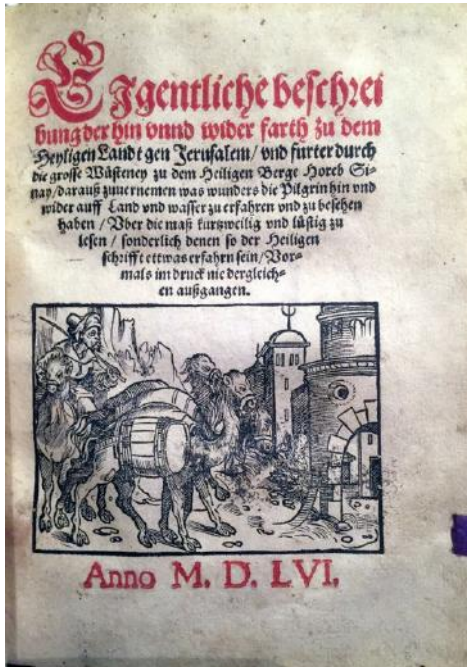 Eigentliche beschrei
bung der hin vnnd wider farth zu dem
Heyligen Landt gen Jerusalem / vnd furter durch
die grosse Wüsteney zu dem Heiligen Berge Horeb Si-
nay / darauß zuuernemen was wunders die Pilgrin hin vnd
wider auff Land vnd wasser zu erfahren vnd zu besehen
haben / Vber die maß kurtzweilig vnd lüstig zu
lesen / sonderlich denen so der Heiligen
schrifft ettwas erfahrn sein / Vor-
mals im druck nie dergleich-
en außgangen.
Anno M. D. LVI.